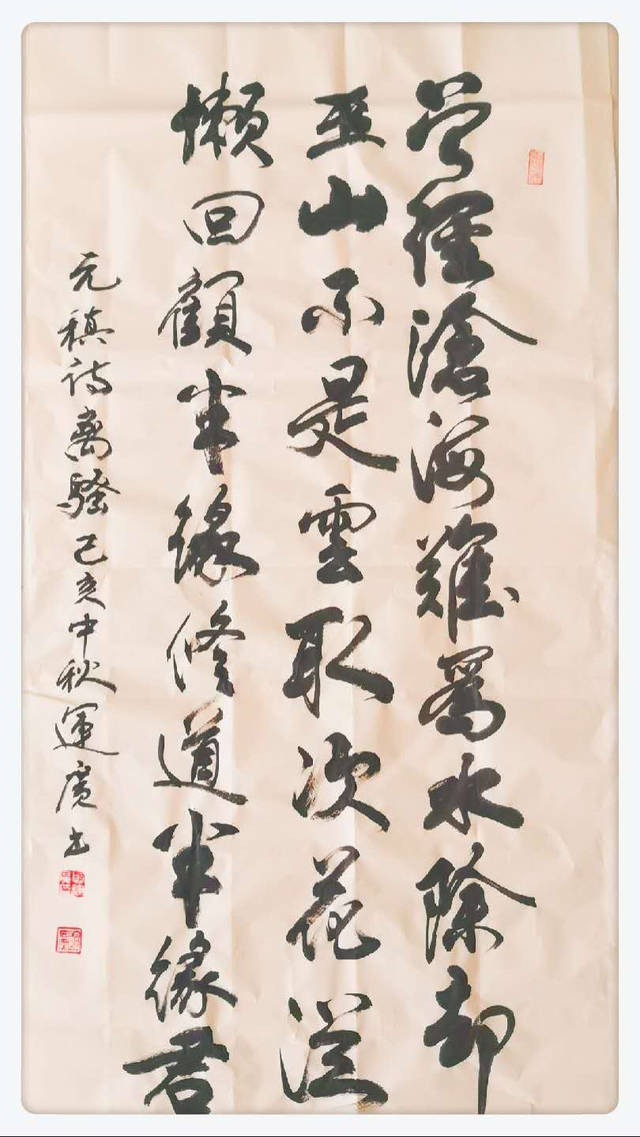 曾經滄海難為水除却
巫山不是雲取次花從
懶回顧半緣修道半緣君
元稹詩离騷己亥中秋運廣书